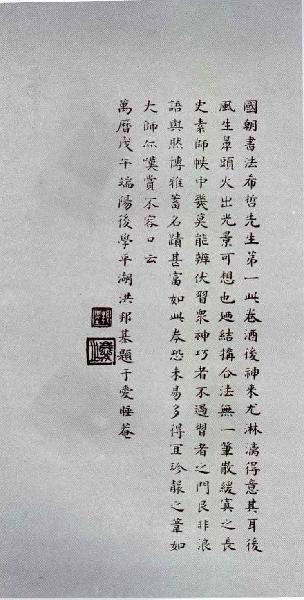 國朝書法希哲先生第一此卷酒後神來尤淋漓得意其耳後
風生鼻頭火出光景可想也迺結搆合法無一筆散緩寘之長
史素師帙中幾莫能辨伏習眾神巧者不過習者之門良非浪
語與然博雅蓄名蹟甚富如此卷恐未易多得宜珍襲之輩如
大師亦嘆賞不容口云
萬曆戊午端陽後學平湖洪邦基題于愛睡菴